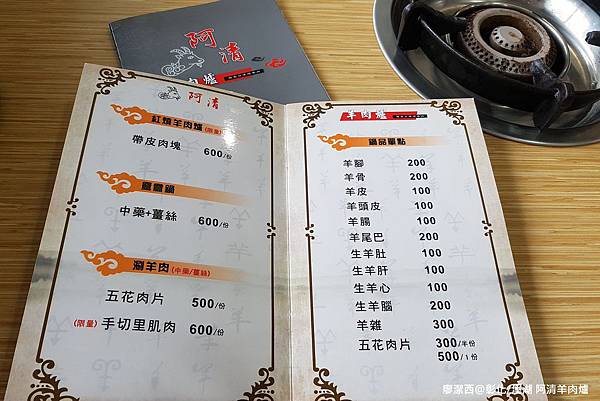 阿清
阿清
紅燒羊肉爐(限量)
帶皮肉塊 600/份
中藥+薑絲 600/份
涮羊肉(中藥/薑絲)
五花肉片 500/份
(限量) 手切里肌肉 600/份
羊肉爐
鍋品單點
羊腳 200
羊骨 200
羊皮 100
羊頭皮 100
羊腸 100
羊尾巴 200
生羊肚 100
生羊肝 100
生羊心 100
生羊腦 200
羊雜 300
五花肉片 300/半份
500/1份
廖潔西@彰化 阿清羊肉爐